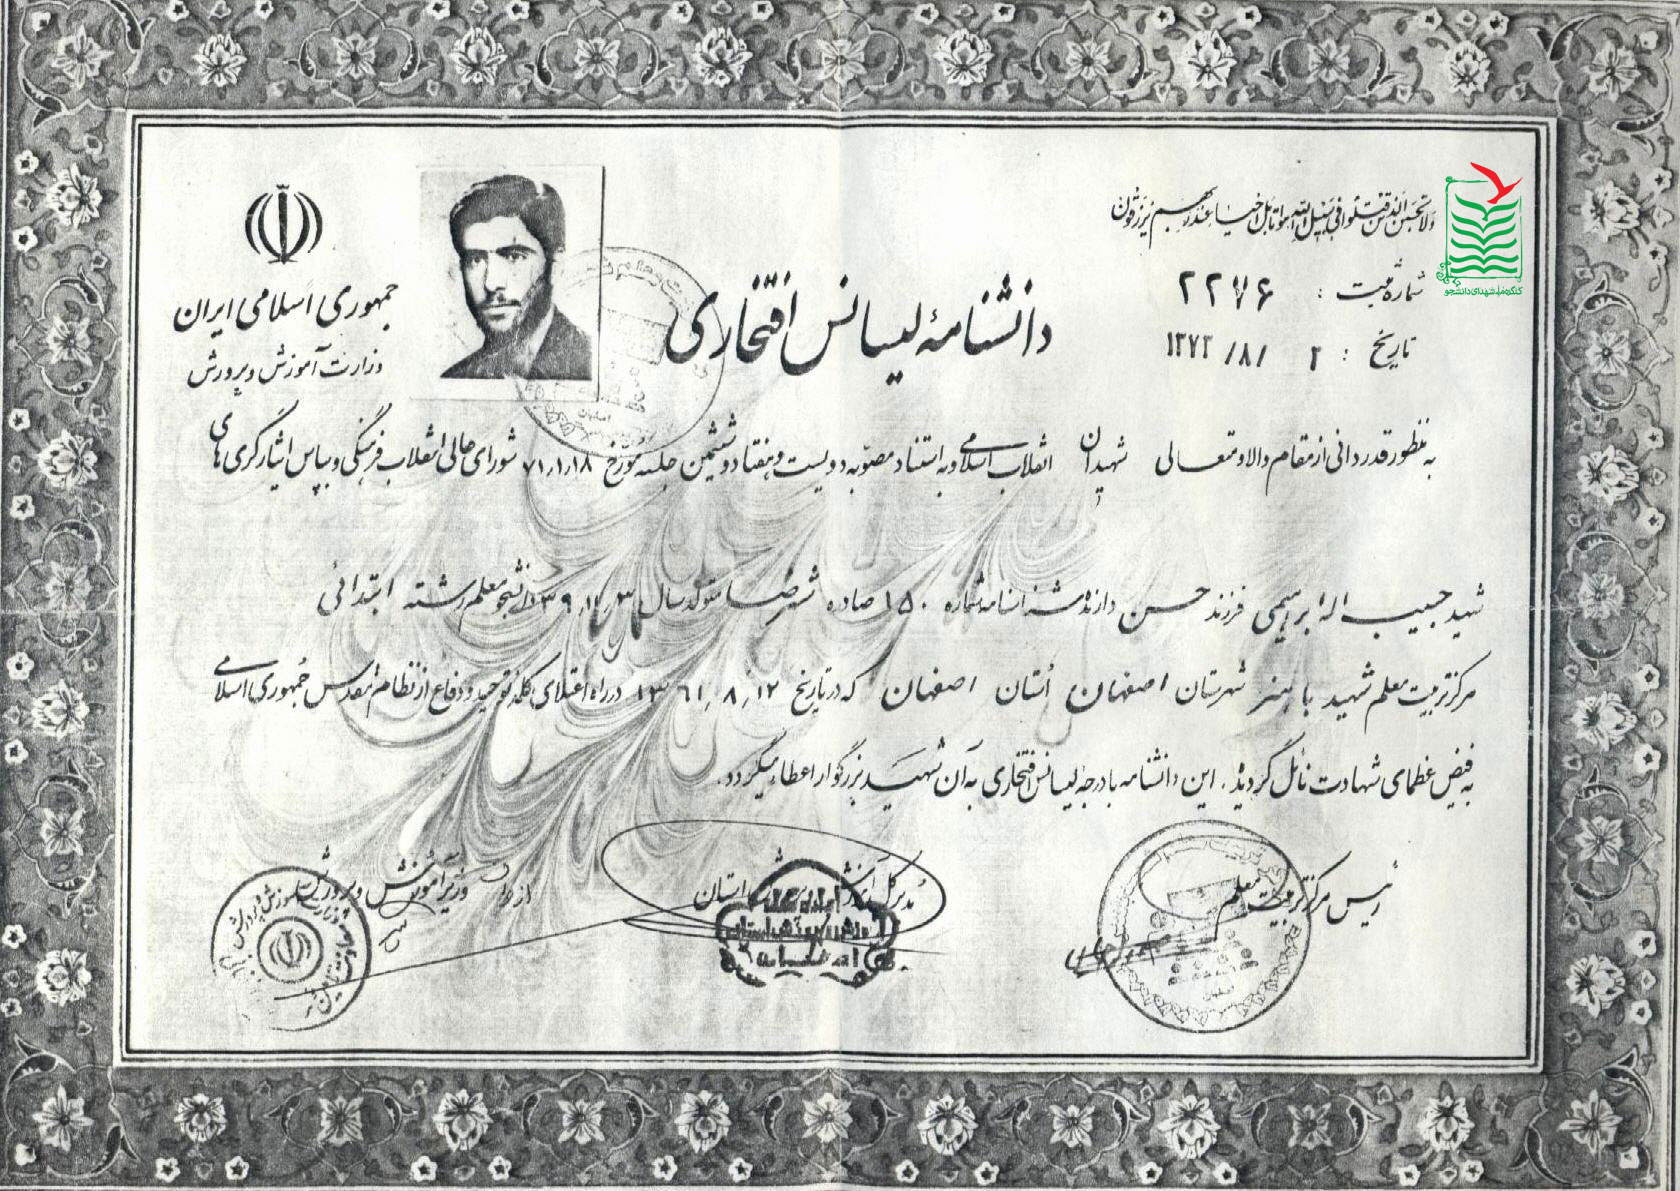 ولا تحسبن الذین قتلوا فی سبیل الله امواتا بل احیاء عند ربهم یرزقون
کنگره ملی شهدای دانشجو
شماره ثبت : ۲۲۷۶
تاریخ : ۲ /۸/ ۱۳۷۳
جمهوری اسلامی ایران
وزارت آموزش و پرورش
دانشنامهٔ لیسانس افتخاری
به منظور قدردانی از مقام والا و متعالی شهیدان انقلاب اسلامی و به استناد مصوبه دویست و هفتاد و ششمین جلسه مورخ ۷۱/۱/۱۸ شورای عالی انقلاب فرهنگی و بپاس ایثارگری های
شهید حبیب اله ابراهیمی فرزند حسن دارنده شناسنامه شماره ۱۵۰ صادره شهرضا متولد سال دانشجو معلم رشته ابتدائی
مرکز تربیت معلم شهید باهنر شهرستان اصفهان استان اصفهان که در تاریخ ۱۳۶۱/۸/۱۲ در راه اعتلای کلمه توحید و دفاع از نظام مقدس جمهوری اسلامی
به فیض عظمای شهادت نائل گردید. این دانشنامه با درجه لیسانس افتخاری به آن شهید بزرگوار اعطاء میگردد.
رئیس مرکز تربیت معلم
مدیر کل آموزش و پرورش استان
وزیر آموزش و پرورش